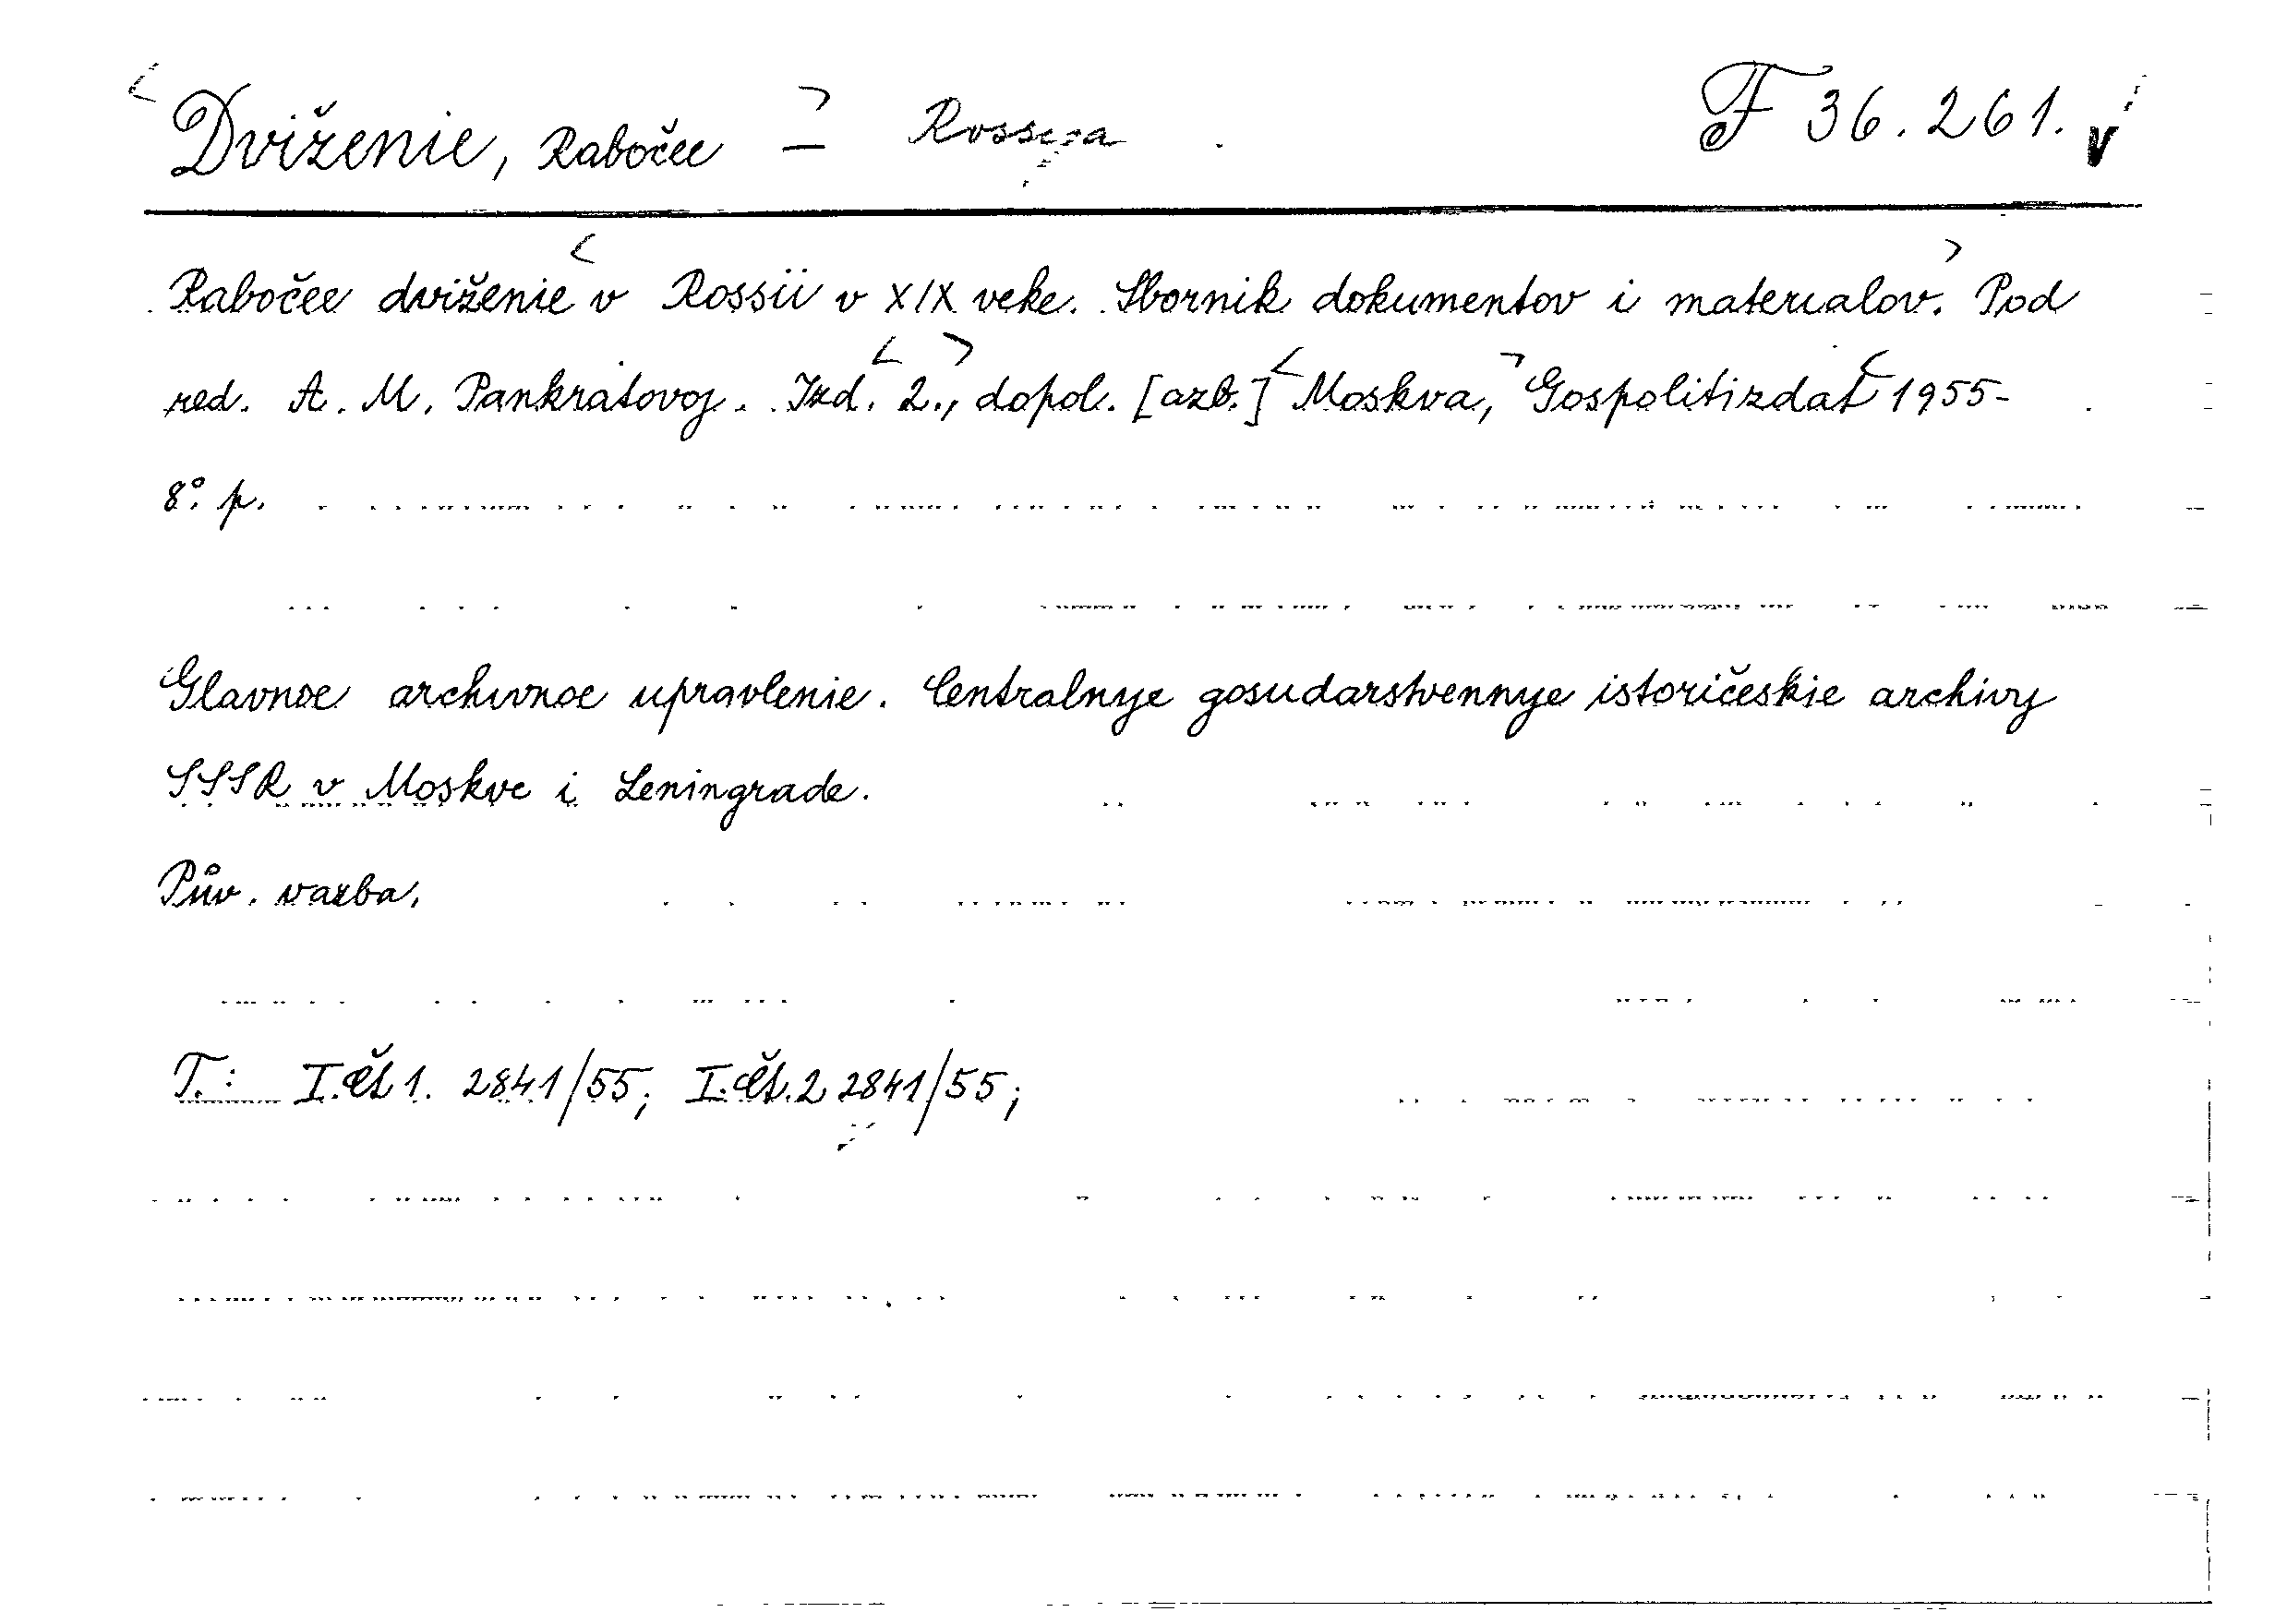 Dviženie, Rabočee — Rossija F 36.261. v
Rabočee dviženie v Rossii v XIX veke. Sbornik dokumentov i materialov. Pod
red. A. M. Pankratovoj. Izd. 2., dopol. [azb.] Moskva, Gospolitizdat 1955-
8° p.
Glavnoe archivnoe upravlenie. Centralnye gosudarstvennye istoričeskie archivy
SSSR v Moskve i Leningrade.
Pův. vazba.
T.: I.čt 1. 2841/55; I.čt.2 2841/55;